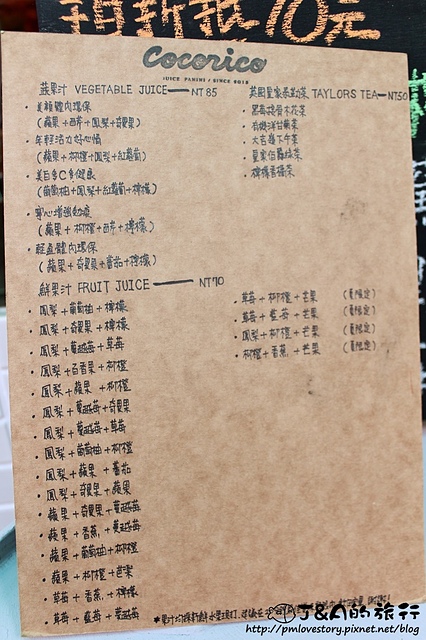 自備杯折抵10元
Cocorico
JUICE PANINI / SINCE 2012
蔬果汁 VEGETABLE JUICE — NT85
・美顏體內環保
(蘋果+西芹+鳳梨+奇異果)
・年輕活力好心情
(蘋果+柳橙+鳳梨+紅蘿蔔)
・美白多C多健康
(葡萄柚+鳳梨+紅蘿蔔+檸檬)
・寧心增強免疫
(蘋果+柳橙+西芹+檸檬)
・輕盈體內環保
(蘋果+奇異果+番茄+檸檬)
英國皇家泰勒茶 TAYLORS TEA — NT50
・黑莓接骨木花茶
・有機洋甘菊茶
・大吉嶺下午茶
・皇家伯爵綠茶
・檸檬香磚茶
鮮果汁 FRUIT JUICE — NT70
・鳳梨+葡萄柚+檸檬
・鳳梨+奇異果+檸檬
・鳳梨+蔓越莓+草莓
・鳳梨+百香果+柳橙
・鳳梨+蘋果+柳橙
・鳳梨+蔓越莓+奇異果
・鳳梨+蔓越莓+草莓
・鳳梨+葡萄柚+柳橙
・鳳梨+蘋果+番茄
・鳳梨+奇異果+蘋果
・蘋果+奇異果+蔓越莓
・蘋果+香蕉+蔓越莓
・蘋果+葡萄柚+柳橙
・蘋果+柳橙+芒果
・草莓+香蕉+檸檬
・草莓+藍莓+蔓越莓
・草莓+柳橙+芒果 (夏限定)
・草莓+藍莓+芒果 (夏限定)
・鳳梨+柳橙+芒果 (夏限定)
・柳橙+香蕉+芒果 (夏限定)
J&A的旅行
http://pmlovestory.pixnet.net/blog